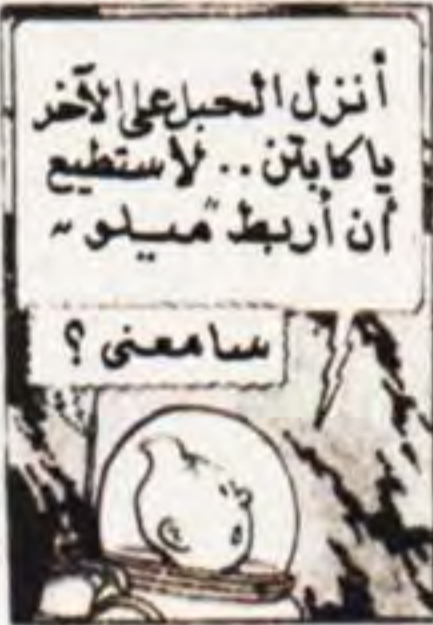 أنزل الحبل على الآخر
يا كابتن .. لأستطيع
أن أربط "ميلو"
سامعنى ؟